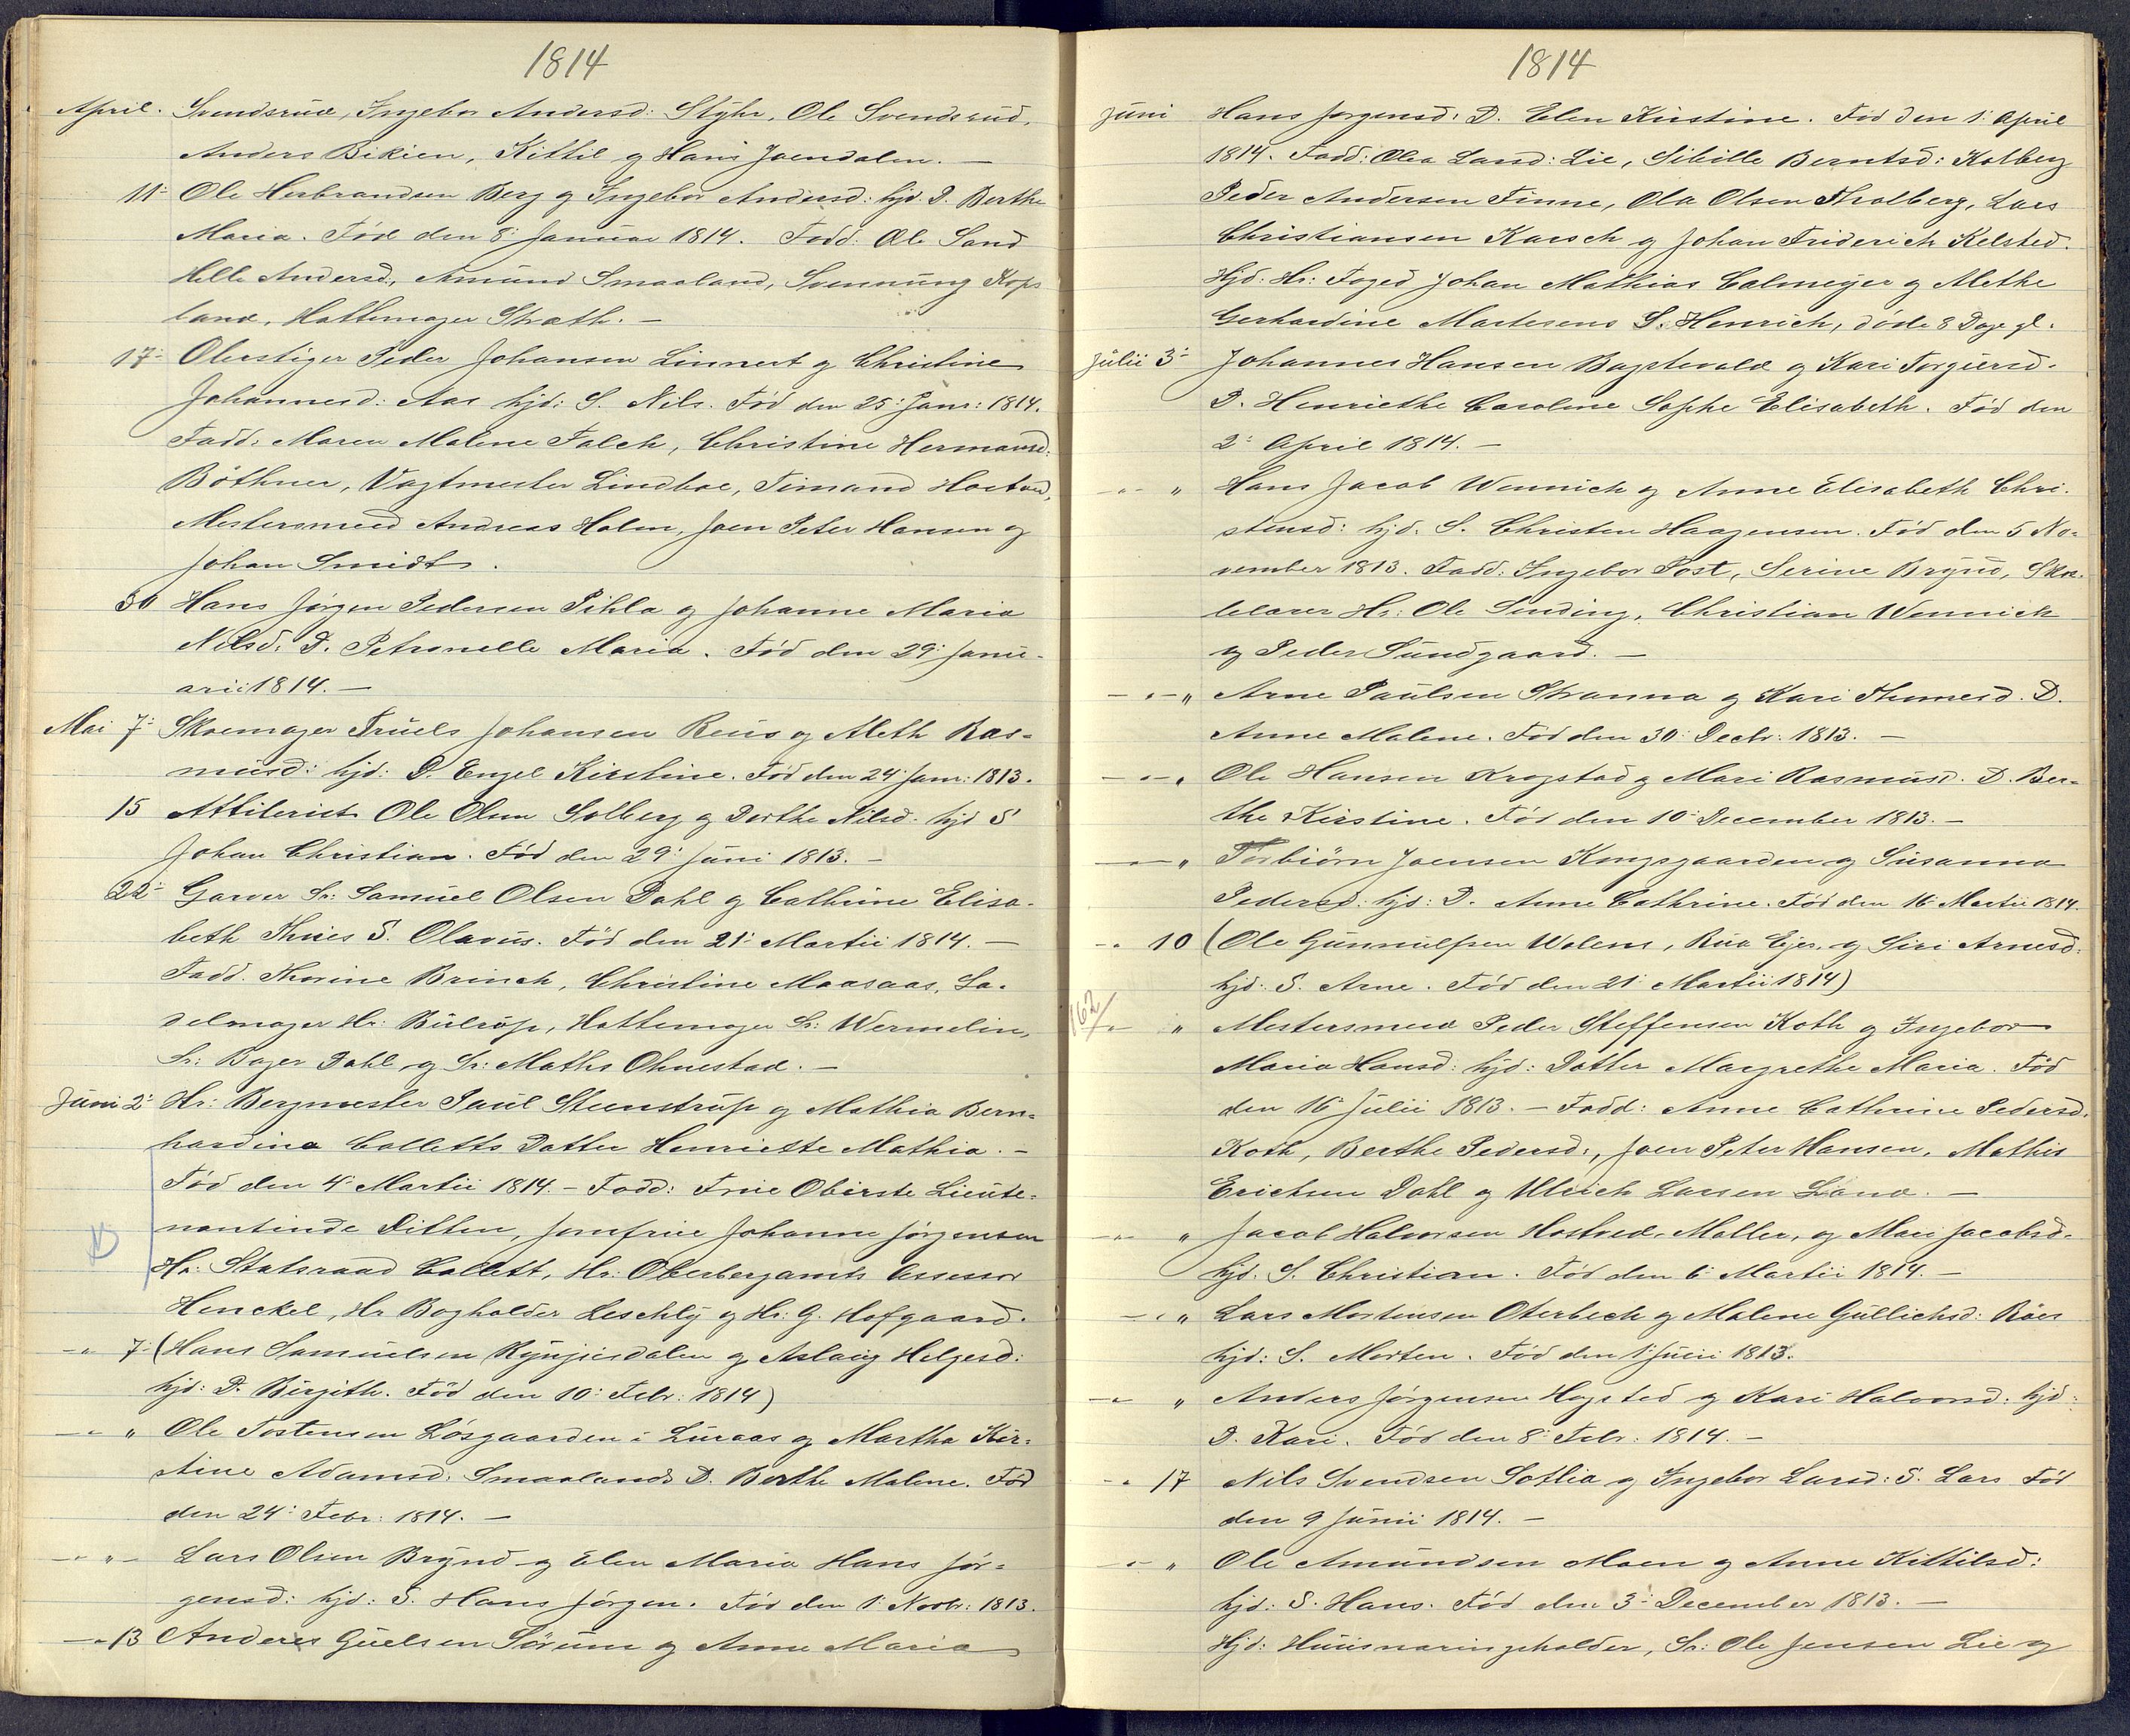 1814
April. Svendsrud, Ingebor Andersd: Styhr, Ole Svendsrud,
Anders Bikien, Kittil og Hans Joendalen. —
11 Ole Herbrandsen Berg og Ingebor Andersd: hjd. D. Berthe
Maria. Född den 8: Januar 1814. Fadd: Ole Sand
Helle Andersd:, Amund Smaaland, Svennung Kops
land, Hattemager Strath. —
17 Oberstiger Peder Johansen Linnert og Christine
Johannesd: Aas hjd: S. Nils. Fød den 25: Janr: 1814.
Fadd: Maren Malene Falch, Christine Hermansd:
Böthner, Vagtmester Lindboe, Timand Hostved,
Mestersmed Andreas Holm, Joen Peter Hansen og
Johan Smidt.
30 Hans Jørgen Pedersen Pihla og Johanne Maria
Nilsd: D. Petronelle Maria. Fød den 29: Janu-
arii 1814. —
Mai 7 Skoemager Truels Johansen Reus og Aleth Ras-
musd: hjd: D. Engel Kirstine. Fød den 24: Janr: 1813.
15 Attilerist Ole Olsen Solberg og Dorthe Nilsd: hjd S
Johan Christian. Fød den 29: Juni 1813. —
22 Garver Sr: Samuel Olsen Dahl og Cathrine Elisa-
beth Thues S. Olavus. Fød den 21: Martii 1814. —
Fadd. Thorine Brinch, Christine Maasaas, Sa-
delmager Hr: Bulrop, Hattemager Sr: Wermelin,
Sr: Bager Dahl og Sr: Maths Ohnestad. —
Juni 2: Hr: Bergmester Paul Steenstrup og Mathia Bern-
hardina Colletts Datter Henriette Mathia. —
Fød den 4: Martii 1814. — Fadd: Frue Oberste Lieute-
nantinde Ditten, Jomfrue Johanne Jörgensen
Hr: Statsraad Collett, Hr: Oberbergamts Assessor
Henckel, Hr Bogholder Leschly og Hr: G. Hofgaard.
-„ 7 (Hans Samuelsen Kynjusdalen og Aslaug Helgesd:
hjd: D. Birgith. Fød den 10: Febr: 1814)
-„- „ Ole Tostensen Løsgaarden i Luraas og Martha Kir-
stine Adamsd: Smaalands D. Berthe Malene. Fød
den 24: Febr: 1814. —
-„- „ Lars Olsen Brynd og Elen Maria Hans Jör-
gensd: hjd: S. Hans Jørgen. Fød den 1: Novbr: 1813.
-„ 13 Anders Guelsen Sørum og Anne Maria
1814
Juni Hans Jørgensd: D. Elen Kirstine. Fød den 1: April
1814. Fadd: Olea Land: Lie, Sibille Berntsd: Kolberg
Peder Andersen Finne, Ola Olsen Tholberg, Lars
Christiansen Karsch og Johan Friderich Kelsted.
Hjd: Hr: Foged Johan Mathias Calmeyer og Alethe
Gerhardine Martesens S. Henrich, døde 8 Dage gl.
Julii 3: Johannes Hansen Bagstevold og Kari Torgiersd.
D. Henriethe Caroline Sophe Elisabeth. Fød den
2: April 1814. —
-„- „ Hans Jacob Wennich og Anne Elisabeth Chri-
stensd: hjd. S. Christen Haagensen. Fød den 5 No-
vember 1813. Fadd: Ingebor Post, Serine Brynd, Skoe-
lærer Hr: Ole Sinding, Christian Wennich
og Peder Sundgaard. —
-„- „ Arne Paulsen Stranna og Kari Thunesd. D.
Anne Malene. Fød den 30: Decbr: 1813. —
-„- „ Ole Hansen Krogstad og Mari Rasmusd. D. Ber-
the Kirstine. Fød den 10: December 1813. —
-„- „ Torbiörn Joensen Kongsgaarden og Susanna
Pedersd: hjd: D. Anne Cathrine. Fød den 16 Martii 1814.
-„ 10 (Ole Gunnulfsen Wolens, Rua Ejer, og Siri Arnesd:
hjd: S. Arne. Fød den 21: Martii 1814)
162 „ Mestersmed Peder Steffensen Koth og Ingebor
Maria Hansd: hjd: Datter Margrethe Maria. Fød
den 16: Julii 1813. — Fadd: Anne Cathrine Pedersd:
Koth, Berthe Pedersd:, Joen Peter Hansen, Mathis
Erichsen Dahl og Ulrich Larsen Land. —
-„- „ Jacob Halvorsen Hostved, Møller, og Mari Jacobsd.
hjd. S. Christian. Fød den 6: Martii 1814. —
-„- „ Lars Mortensen Oterbech og Malene Gullichsd: Röes
hjd: S. Morten. Fød den 1: Junii 1813.
-„- „ Anders Jörgensen Hogsted og Kari Halvorsd: hjd:
D. Kari. Fød den 8: Febr: 1814. —
-„ 17 Nils Svendsen Sotlia og Ingebor Larsd: S. Lars Fød
den 9 Junii 1814. —
-„- „ Ole Amundsen Moen og Anne Kittilsd:
hjd: S. Hans. Fød den 3: December 1813. —
Hjd: Huusnaringsholder, Sr: Ole Jensen Lie og